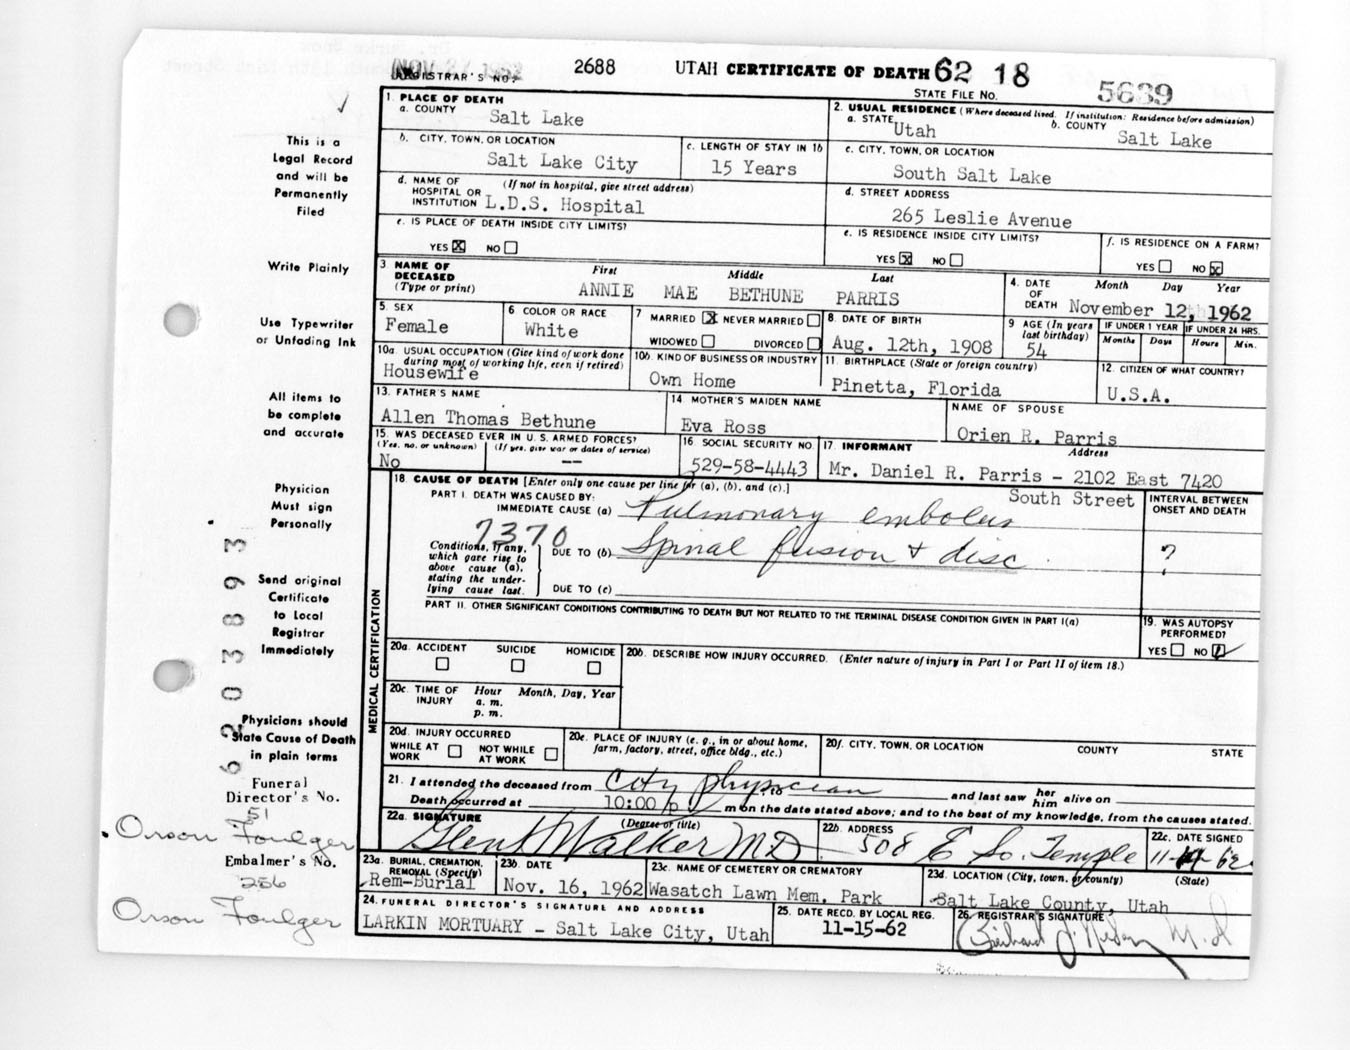 NOV 1962
REGISTRAR'S NO. 2688 UTAH CERTIFICATE OF DEATH 62 18
STATE FILE NO. 5639
This is a
Legal Record
and will be
Permanently
Filed
Write Plainly
Use Typewriter
or Unfading Ink
All items to
be complete
and accurate
Physician
Must sign
Personally
Send original
Certificate
to Local
Registrar
Immediately
Physicians should
State Cause of Death
in plain terms
Funeral
Director's No.
51
Orson Foulger
Embalmer's No.
256
Orson Foulger
62 0 3 8 9 3
1. PLACE OF DEATH
a. COUNTY Salt Lake
2. USUAL RESIDENCE (Where deceased lived. If institution: Residence before admission)
a. STATE Utah b. COUNTY Salt Lake
b. CITY, TOWN, OR LOCATION Salt Lake City
c. LENGTH OF STAY IN 1b 15 Years
c. CITY, TOWN, OR LOCATION South Salt Lake
d. NAME OF HOSPITAL OR INSTITUTION (If not in hospital, give street address) L.D.S. Hospital
d. STREET ADDRESS 265 Leslie Avenue
e. IS PLACE OF DEATH INSIDE CITY LIMITS?
YES X NO
e. IS RESIDENCE INSIDE CITY LIMITS?
YES X NO
f. IS RESIDENCE ON A FARM?
YES NO X
3 NAME OF DECEASED (Type or print) First Middle Last
ANNIE MAE BETHUNE PARRIS
4. DATE OF DEATH Month Day Year
November 12, 1962
5. SEX Female
6 COLOR OR RACE White
7 MARRIED X NEVER MARRIED
WIDOWED DIVORCED
8. DATE OF BIRTH Aug. 12th, 1908
9 AGE (In years last birthday) 54
IF UNDER 1 YEAR Months Days
IF UNDER 24 HRS. Hours Min.
10a. USUAL OCCUPATION (Give kind of work done during most of working life, even if retired) Housewife
10b. KIND OF BUSINESS OR INDUSTRY Own Home
11. BIRTHPLACE (State or foreign country) Pinetta, Florida
12. CITIZEN OF WHAT COUNTRY? U.S.A.
13. FATHER'S NAME Allen Thomas Bethune
14 MOTHER'S MAIDEN NAME Eva Ross
NAME OF SPOUSE Orien R. Parris
15. WAS DECEASED EVER IN U.S. ARMED FORCES?
(Yes, no, or unknown) (If yes, give war or dates of service)
No --
16 SOCIAL SECURITY NO. 529-58-4443
17. INFORMANT Address
Mr. Daniel R. Parris - 2102 East 7420
South Street
MEDICAL CERTIFICATION
18. CAUSE OF DEATH [Enter only one cause per line for (a), (b), and (c).]
INTERVAL BETWEEN ONSET AND DEATH
PART I. DEATH WAS CAUSED BY:
IMMEDIATE CAUSE (a) Pulmonary embolus
7370
Conditions, if any, which gave rise to above cause (a), stating the underlying cause last.
DUE TO (b) Spinal fusion & disc ?
DUE TO (c)
PART II. OTHER SIGNIFICANT CONDITIONS CONTRIBUTING TO DEATH BUT NOT RELATED TO THE TERMINAL DISEASE CONDITION GIVEN IN PART I(a)
19. WAS AUTOPSY PERFORMED?
YES NO
20a. ACCIDENT SUICIDE HOMICIDE
20b. DESCRIBE HOW INJURY OCCURRED. (Enter nature of injury in Part I or Part II of item 18.)
20c. TIME OF INJURY Hour Month, Day, Year
a. m.
p. m.
20d. INJURY OCCURRED
WHILE AT WORK NOT WHILE AT WORK
20e. PLACE OF INJURY (e. g., in or about home, farm, factory, street, office bldg., etc.)
20f. CITY, TOWN, OR LOCATION COUNTY STATE
21. I attended the deceased from City physician and last saw her him alive on
Death occurred at 10:00 p m on the date stated above; and to the best of my knowledge, from the causes stated.
22a. SIGNATURE (Degree or title) Walker MD
22b. ADDRESS 508 E So. Temple
22c. DATE SIGNED 62
23a. BURIAL, CREMATION, REMOVAL (Specify) Rem-Burial
23b. DATE Nov. 16, 1962
23c. NAME OF CEMETERY OR CREMATORY Wasatch Lawn Mem. Park
23d. LOCATION (City, town, or county) (State)
Salt Lake County, Utah
24. FUNERAL DIRECTOR'S SIGNATURE AND ADDRESS
LARKIN MORTUARY - Salt Lake City, Utah
25. DATE RECD. BY LOCAL REG. 11-15-62
26. REGISTRAR'S SIGNATURE